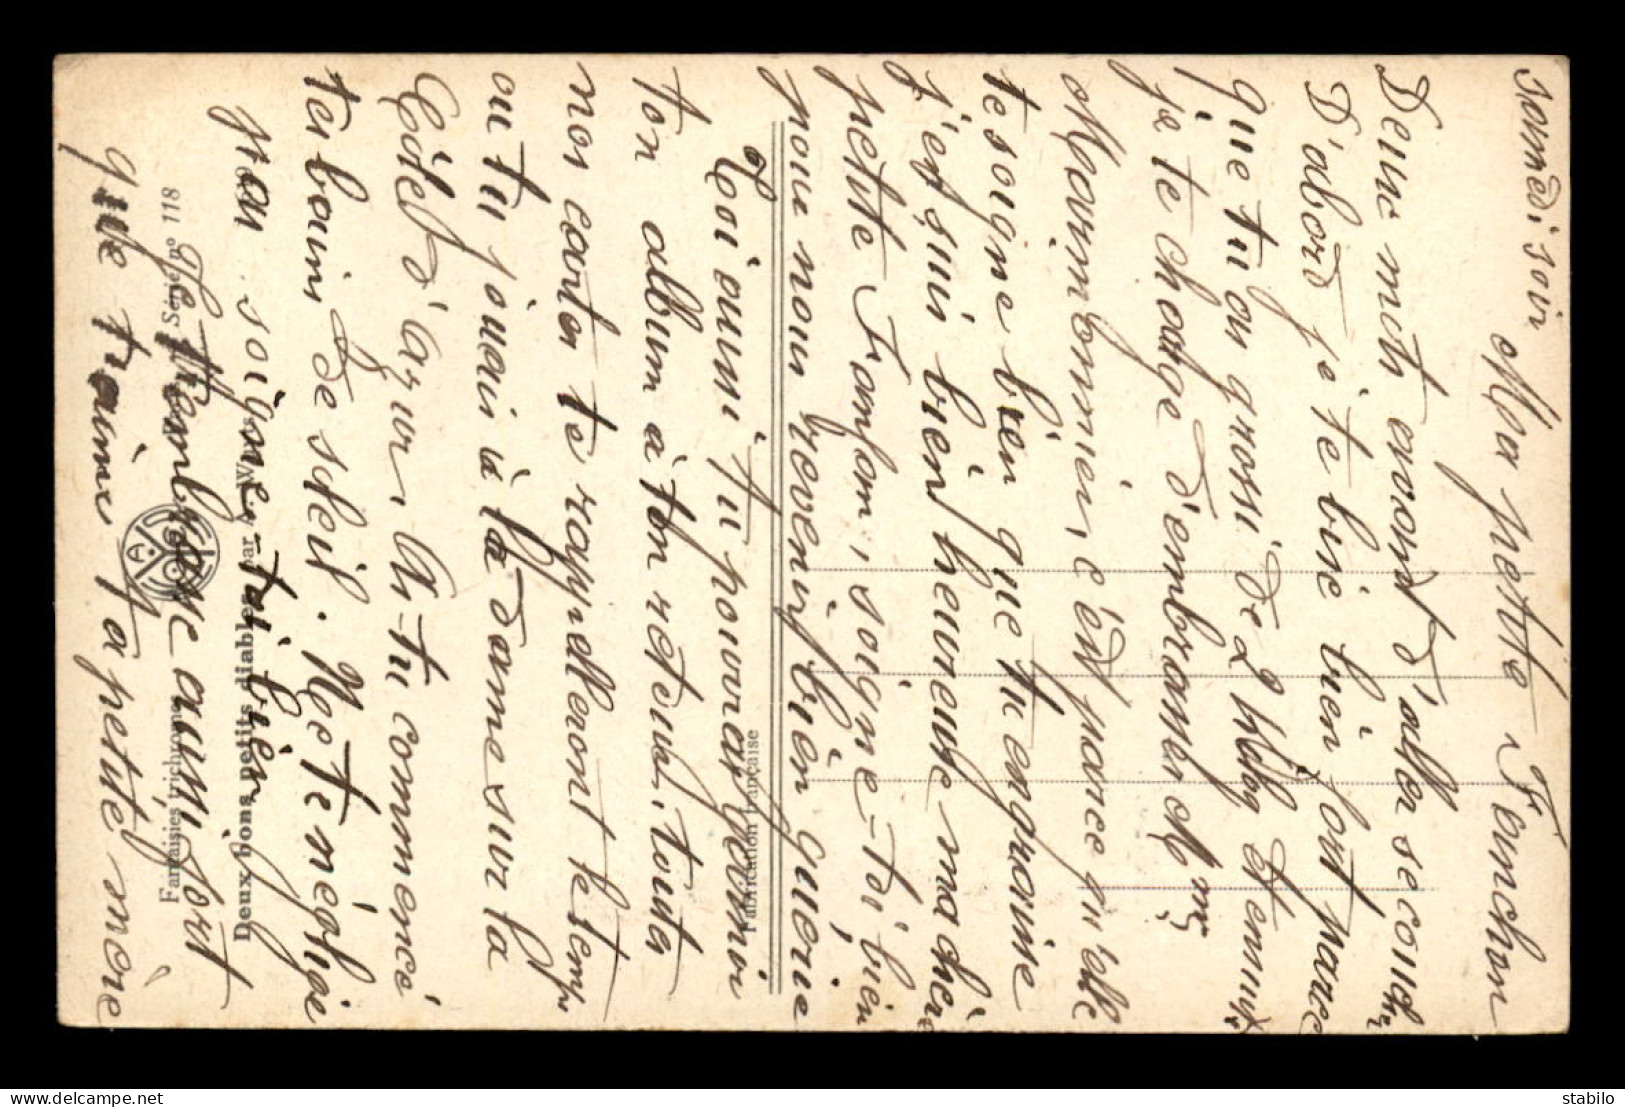 samedi soir
Ma petite Fanchon
Deux mots avant d'aller se coucher
D'abord je te bise bien fort parce
que tu as grossi de 2 kilog et ensuite
je te charge d'embrasser Mme
Marimbonnier, c'est parce qu'elle
te soigne bien que tu engraisse
j'en suis bien heureuse ma chère
petite Fanfan, soigne-toi bien
pour nous revenir bien guérie
Toi aussi tu pourras garnir
ton album à ton retour, toutes
nos cartes te rappelleront le temps
où tu jouais à la dame sur la
Côte d'azur, As-tu commencé
tes bains de soleil. Ne te néglige
pas soigne-toi bien
Je t'embrasse aussi fort
que t'aime ta petite mère
Fabrication française
Deux bons petits diables, par Wuyts
Fantaisies trichromes
Série nº 118
A